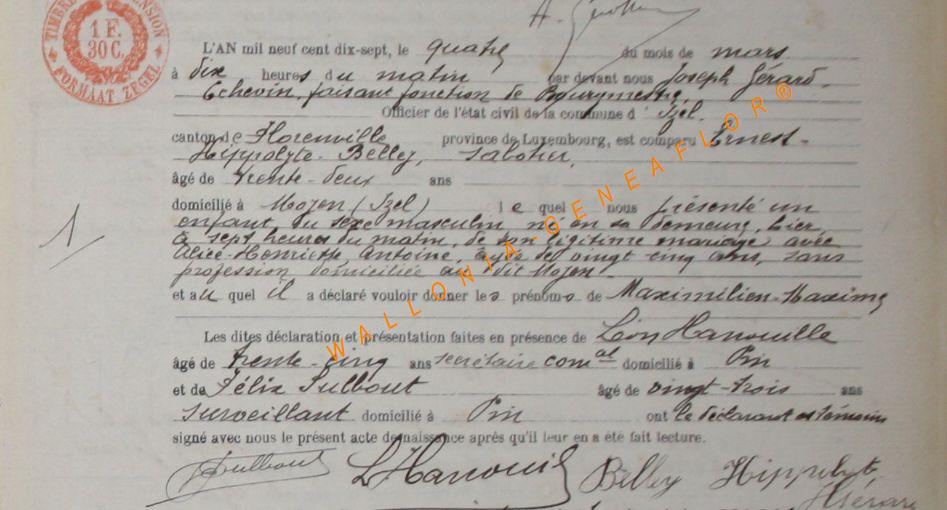 TIMBRE
1 F.
30 C.
FORMAAT ZEGEL
L'AN mil neuf cent dix-sept, le quatre du mois de mars
à dix heures du matin par devant nous Joseph Gérard
Echevin, faisant fonction de Bourgmestre,
Officier de l'état civil de la commune d'Izel,
canton de Florenville province de Luxembourg, est comparu Ernest-
Hippolyte Belley, sabotier,
âgé de trente-deux ans
domicilié à Moyen (Izel) lequel nous présenté un
enfant du sexe masculin, né en sa demeure, hier,
à sept heures du matin, de son légitime mariage avec
Alice-Henriette Antoine, âgée de vingt cinq ans, sans
profession domiciliée au dit Moyen.
et auquel il a déclaré vouloir donner les prénoms de Maximilien-Maxime
Les dites déclaration et présentation faites en présence de Léon Hanouille
âgé de trente-cinq ans secrétaire comal domicilié à Pin
et de Félix Sulbout âgé de vingt-trois ans
surveillant domicilié à Pin ont le déclarant et témoins
signé avec nous le présent acte de naissance après qu'il leur en a été fait lecture.
Sulbout L Hanouil Belley Hippolyte
Gérard
1
WALLONIA-GENEAFLOR®